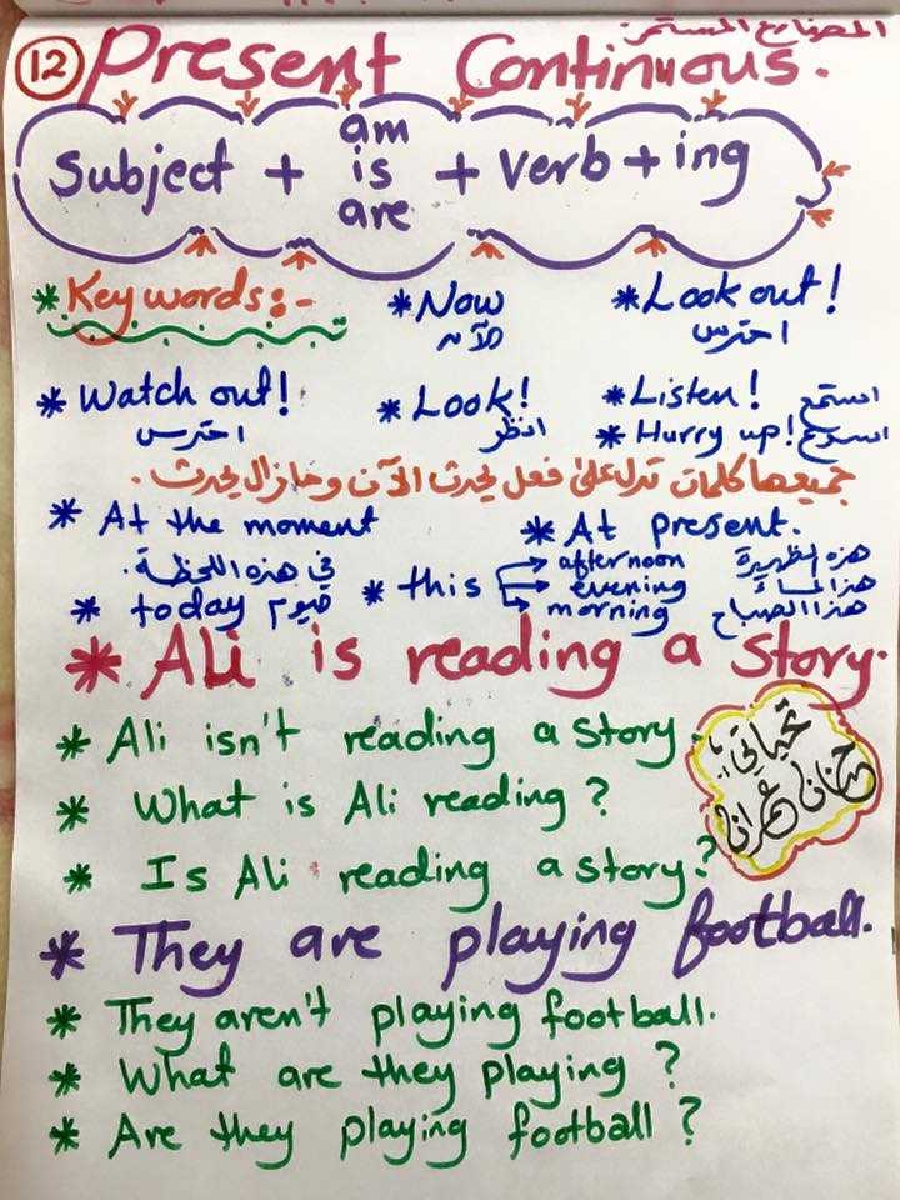 المضارع المستمر:
12 Present Continuous.
Subject + am is are + verb + ing
* Key words:- * Now * Look out!
الآن احترس
* Watch out! * Look! * Listen! استمع
احترس انظر * Hurry up! اسرع
جميعها كلمات تدل على فعل يحدث الآن ومازال يحدث.
* At the moment * At present.
في هذه اللحظة. * this afternoon هذه الظهيرة
evening هذا المساء
* today اليوم morning هذا الصباح
* Ali is reading a story.
* Ali isn't reading a story.
تحياتي:
* What is Ali reading?
حنان
* Is Ali reading a story?
* They are playing football.
* They aren't playing football.
* What are they playing?
* Are they playing football?